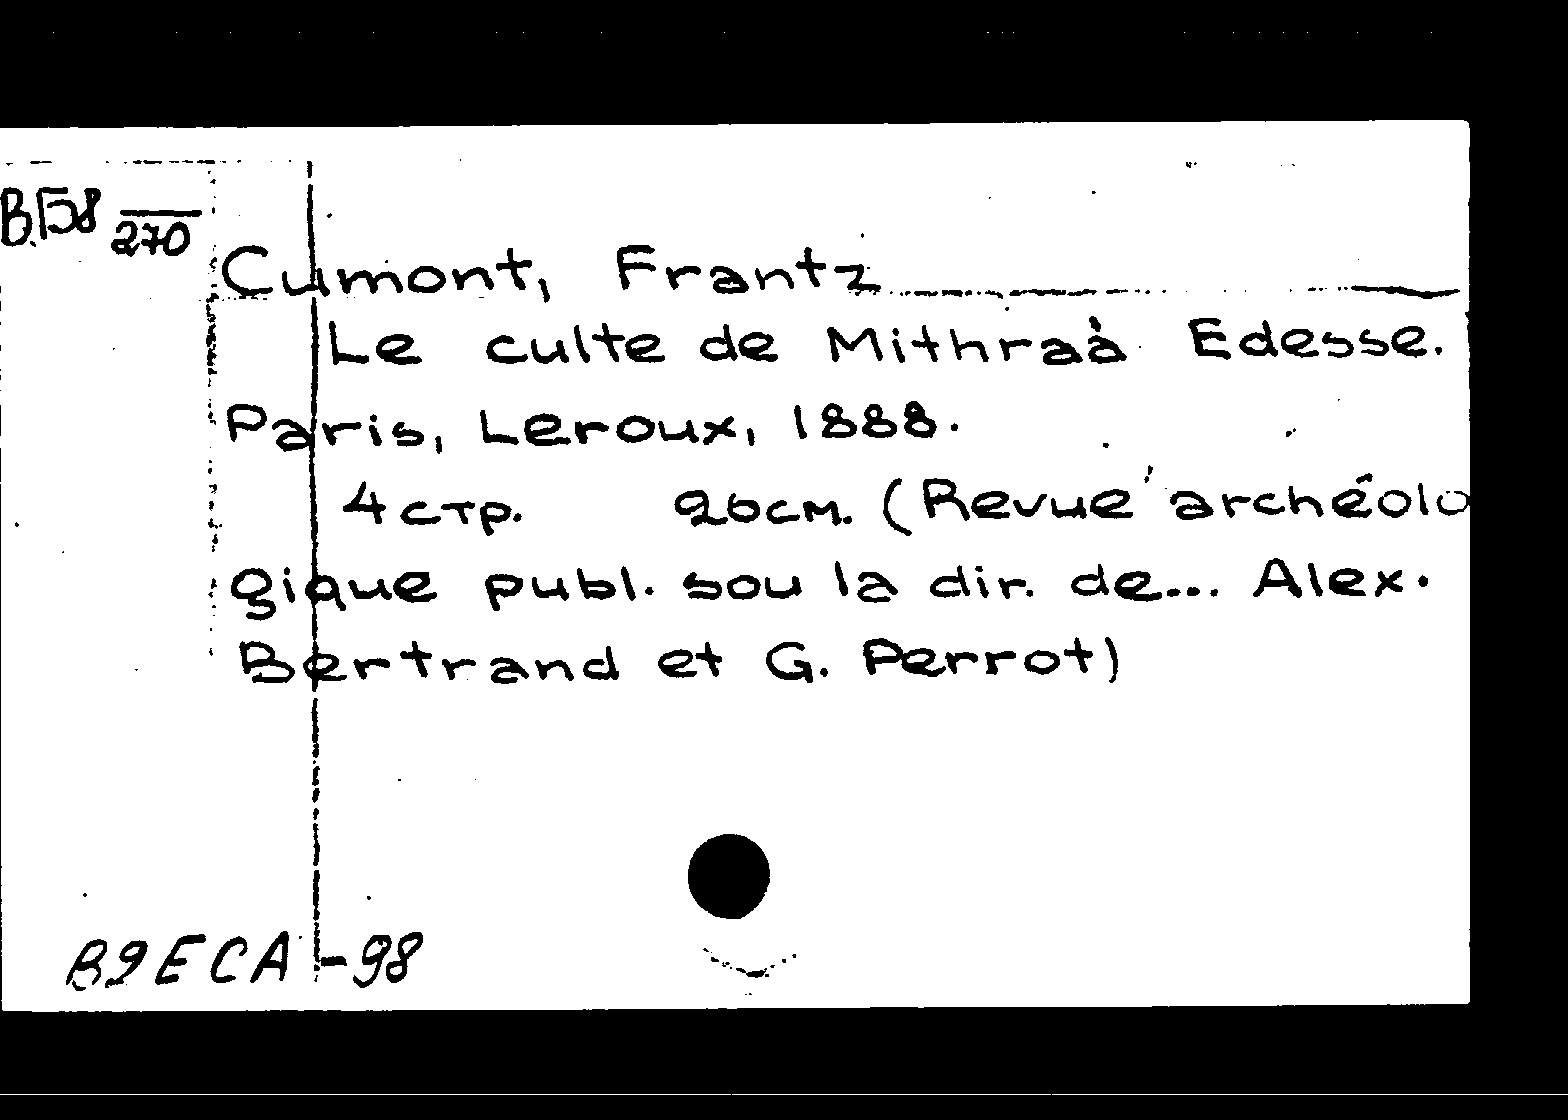 В.Б58 270
Cumont, Frantz
Le culte de Mithraà Edesse.
Paris, Leroux, 1888.
4 стр. 26см. (Revue archéolo
gique publ. sou la dir. de... Alex.
Bertrand et G. Perrot)
В9ЕСА-98